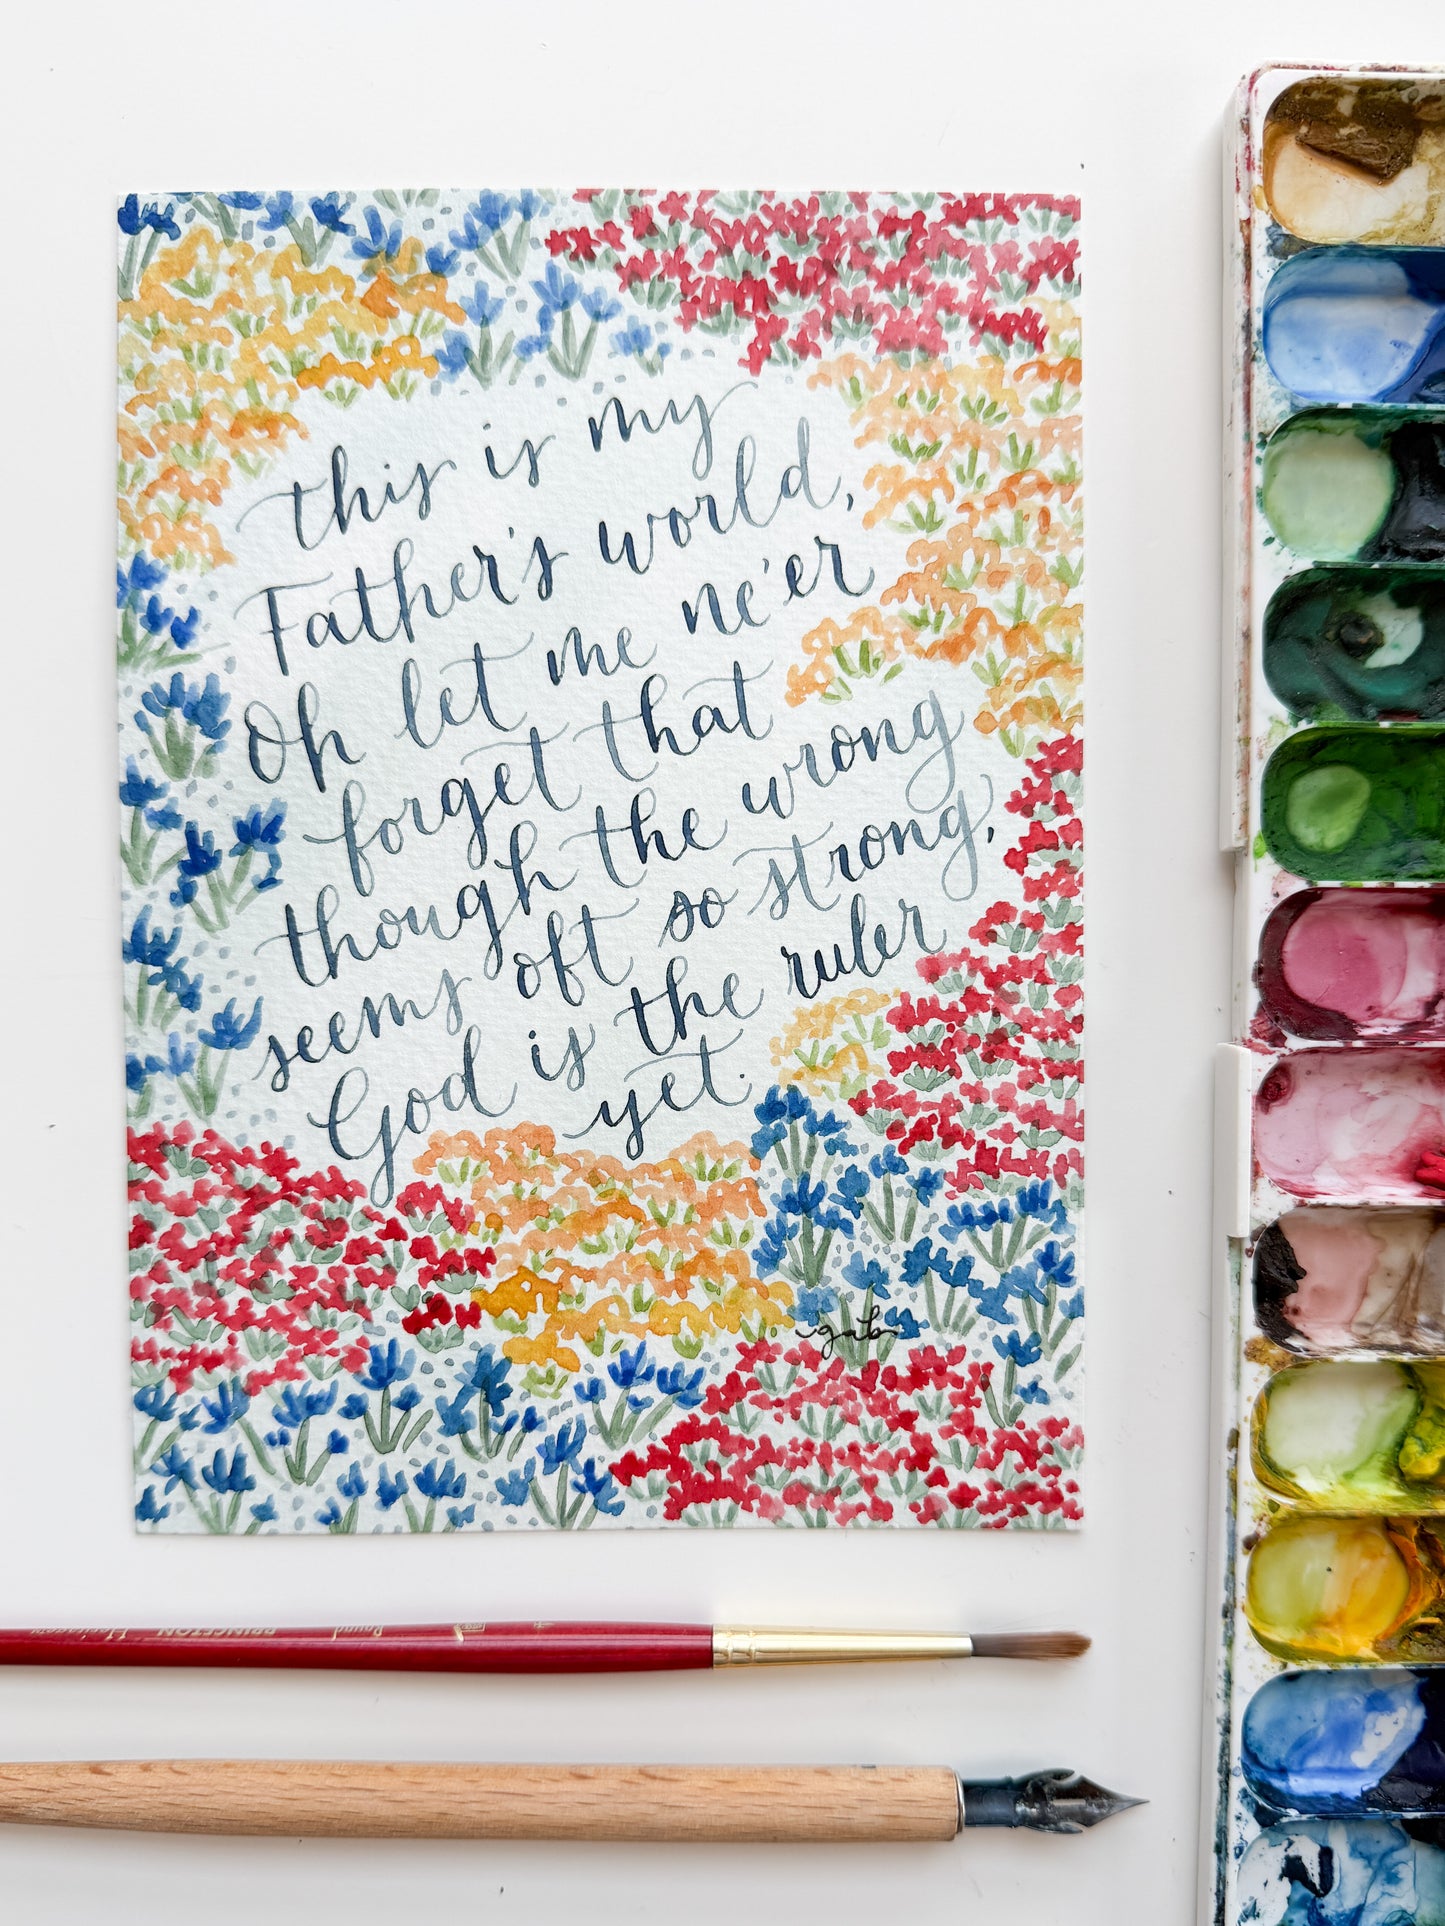 this is my
Father's world,
Oh let me ne'er
forget that
though the wrong
seems oft so strong,
God is the ruler
yet.
gab
PRINCETON Heritage Round 4